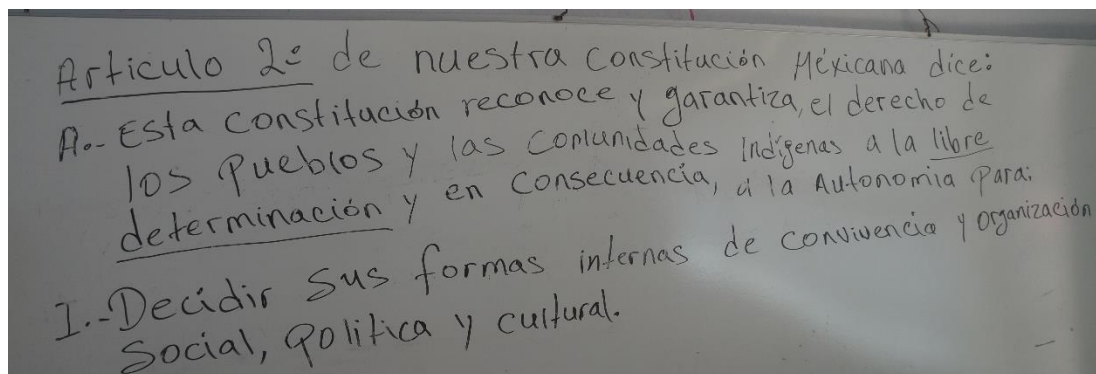 Articulo 2º de nuestra Constitución Méxicana dice:
A.- Esta constitución reconoce y garantiza, el derecho de
los pueblos y las Comunidades Indígenas a la libre
determinación y en consecuencia, a la Autonomia para:
I.- Decidir sus formas internas de convivencia y organización
Social, politica y cultural.